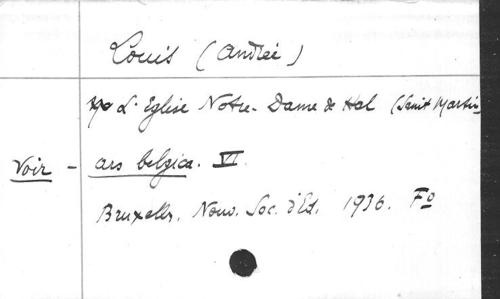 Louis (André)
L'Eglise Notre-Dame de Hal (Saint Martin
Voir - ars belgica. VI.
Bruxelles, Nouv. Soc. d'Ed. 1936. Fo